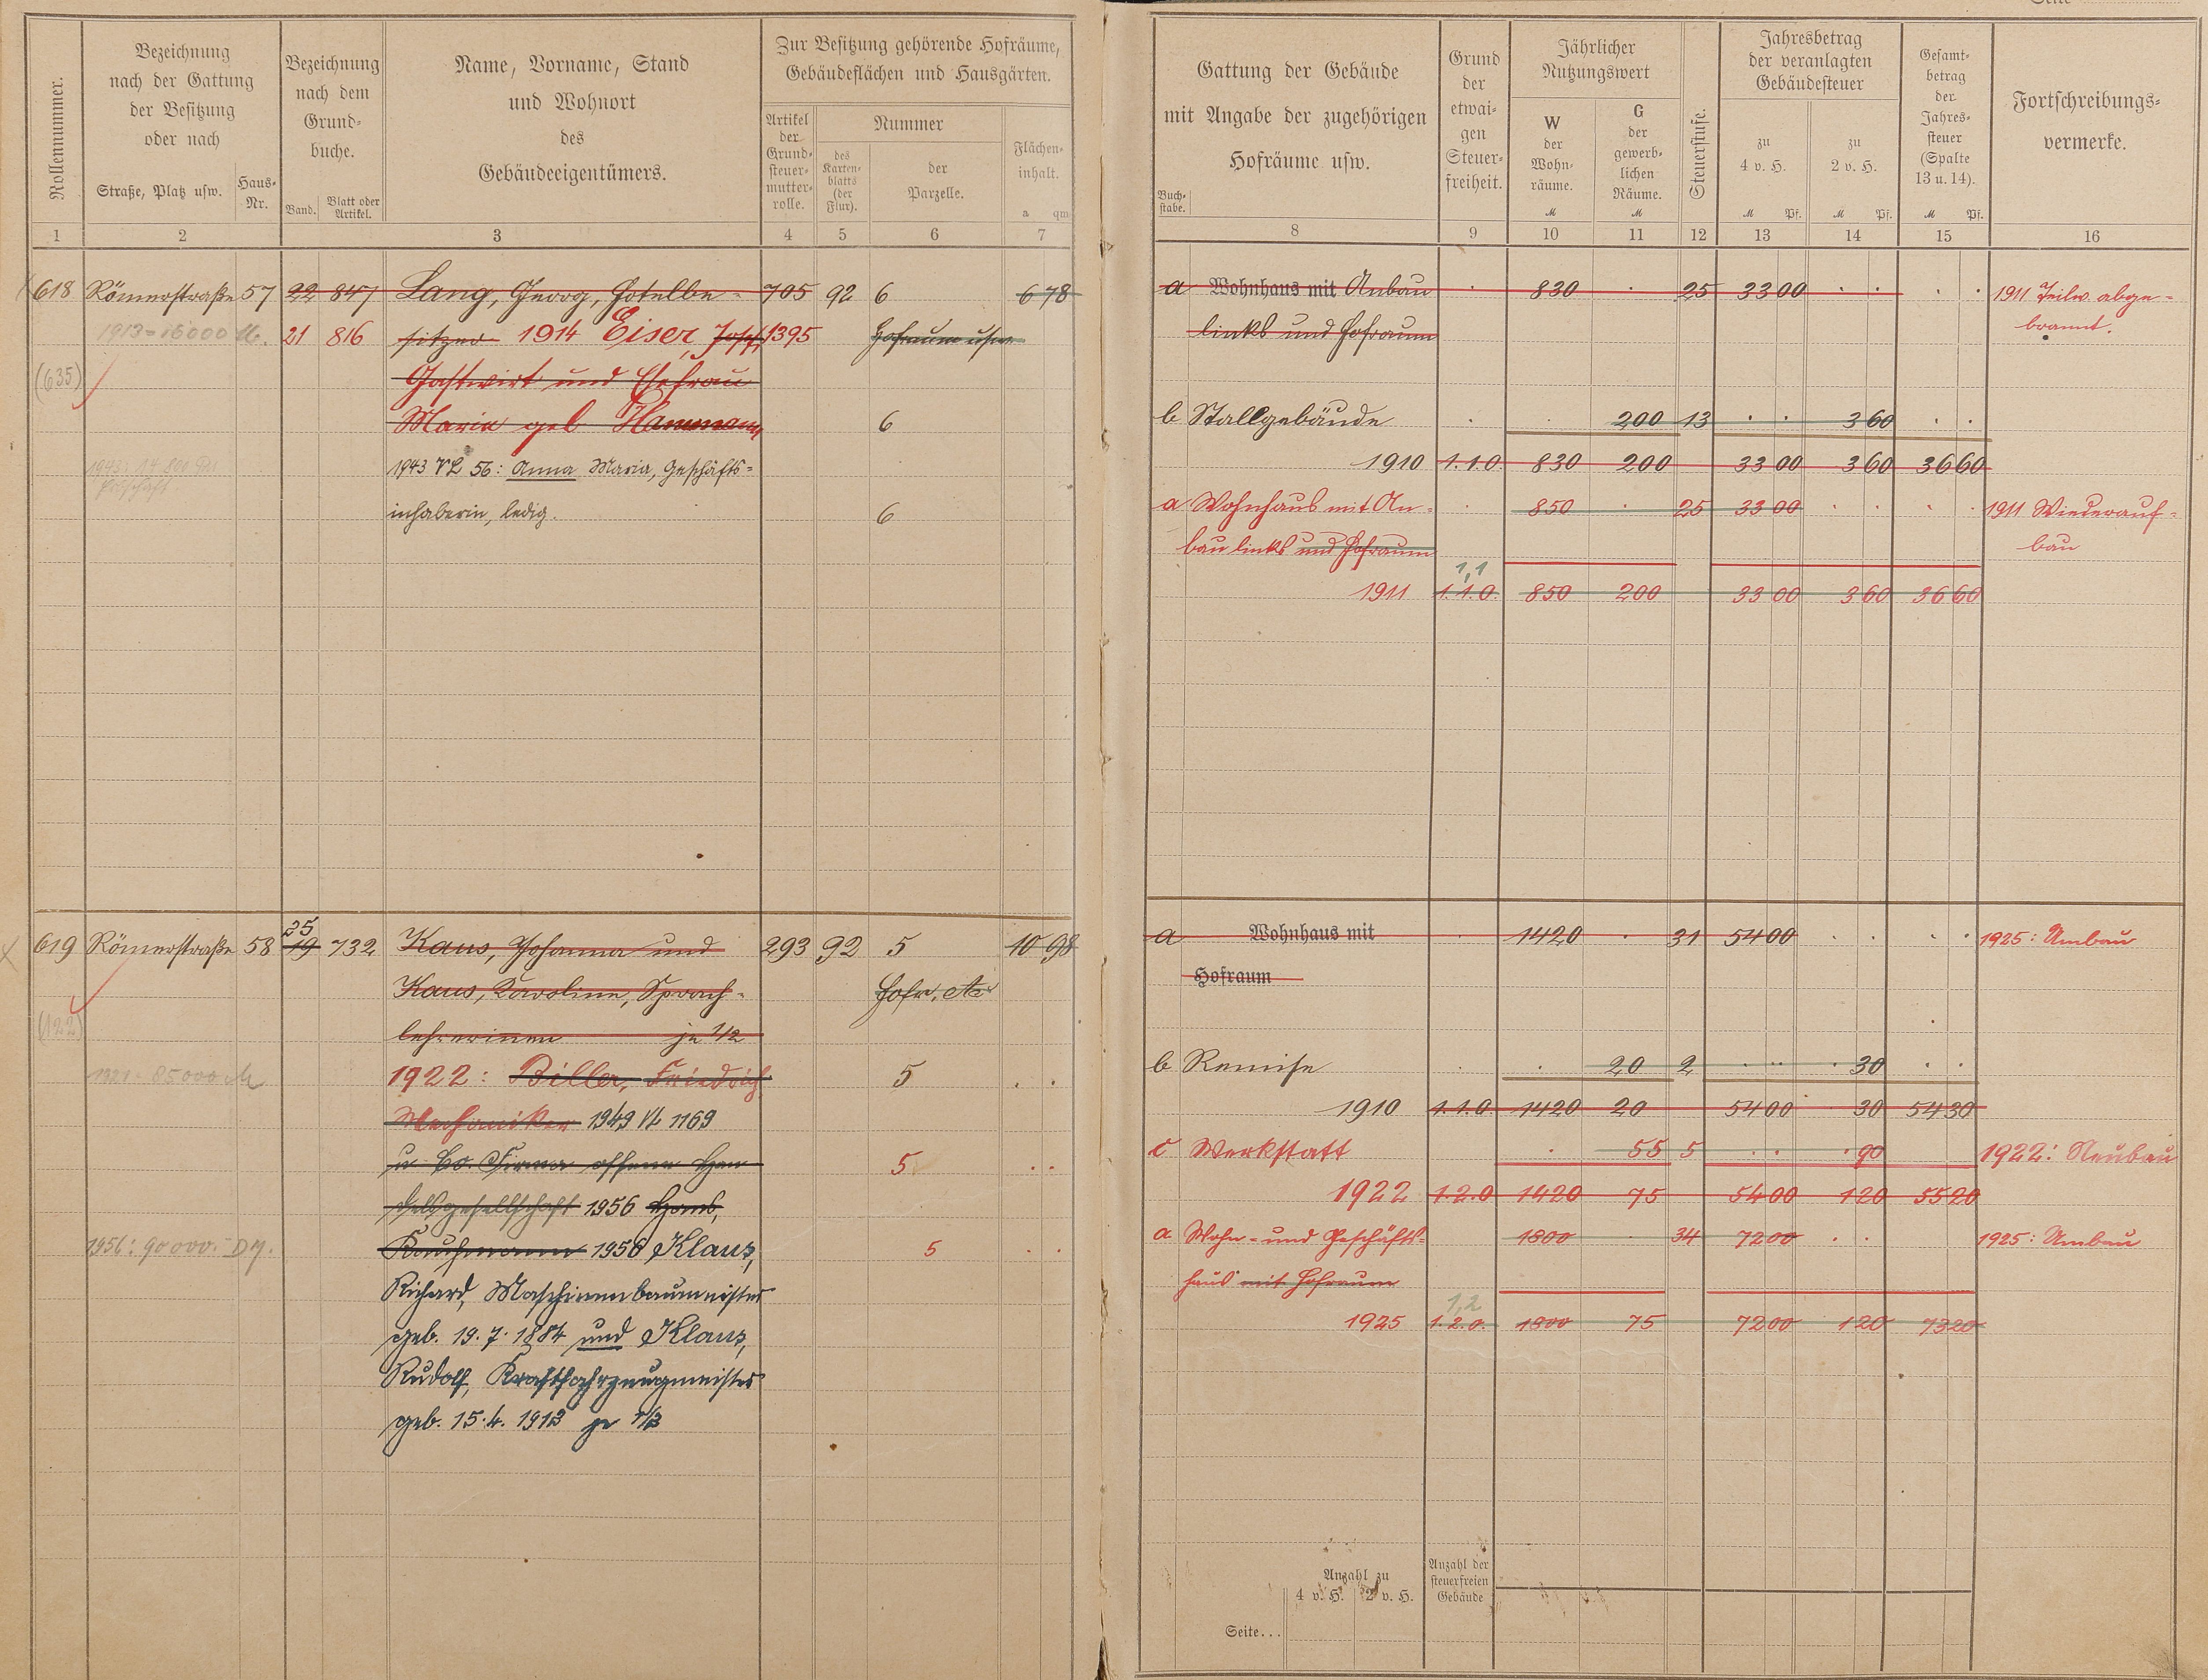 Seite
Rollennummer.
Bezeichnung
nach der Gattung
der Besitzung
oder nach
Straße, Platz usw.
Haus-
Nr.
Bezeichnung
nach dem
Grund-
buche.
Band.
Blatt oder
Artikel.
Name, Vorname, Stand
und Wohnort
des
Gebäudeeigentümers.
Zur Besitzung gehörende Hofräume,
Gebäudeflächen und Hausgärten.
Artikel
der
Grund-
steuer-
mutter-
rolle.
Nummer
des
Karten-
blatts
(der
Flur).
der
Parzelle.
Flächen-
inhalt.
a qm
1 2 3 4 5 6 7
618 Römerstraße 57 22 847 Lang, Georg, Hotelbe- 705 92 6 6 78
1913 = 16000 M. 21 816 sitzer 1914 Eiser, Josef, 1395 Hofraum usw.
(635) Gastwirt und Ehefrau
Maria geb Hammann 6
1943 VL 56: Anna Maria, Geschäfts-
inhaberin, ledig. 6
35
619 Römerstraße 58 19 732 Kaus, Johanna und 293 92 5 10 98
Kaus, Karoline, Sprach-
(122) lehrerinnen je 1/2
1921 = 85000 M 1922: Biller, Friedrich 5 . .
Mechaniker 1949 VL 1169
u Co. Firma offene Han 5 . .
delsgesellschaft 1956 Hans,
1956: 90 000.- DM. Kaufmann 1956 Klaus, 5 . .
Richard, Maschinenbaumeister
geb. 19. 7. 1884 und Klaus,
Rudolf, Kraftfahrzeugmeister
geb. 15. 4. 1913 je 1/2
Gattung der Gebäude
mit Angabe der zugehörigen
Hofräume usw.
Buch-
stabe.
Grund
der
etwai-
gen
Steuer-
freiheit.
Jährlicher
Nutzungswert
W
der
Wohn-
räume.
M
G
der
gewerb-
lichen
Räume.
M
Steuerstufe.
Jahresbetrag
der veranlagten
Gebäudesteuer
zu
4 v. H.
M Pf.
zu
2 v. H.
M Pf.
Gesamt-
betrag
der
Jahres-
steuer
(Spalte
13 u. 14).
M Pf.
Fortschreibungs-
vermerke.
8 9 10 11 12 13 14 15 16
a Wohnhaus mit Anbau . 830 . 25 33 00 . . . . 1911 Teilw. abge-
links und Hofraum brannt.
b Stallgebäude . . 200 13 . . 3 60 . .
1910 1.1.0. 830 200 33 00 3 60 36 60
a Wohnhaus mit An- . 850 . 25 33 00 . . . . 1911 Wiederauf-
bau links und Hofraum bau
1,1
1911 1.1.0. 850 200 33 00 3 60 36 60
a Wohnhaus mit . 1420 . 31 54 00 . . . . 1925: Umbau
Hofraum
b Remise . . 20 2 . . . 30 . .
1910 1.1.0 1420 20 54 00 30 54 30
c Werkstatt . 55 5 . . . 90 1922: Neubau
1922 1.2.0 1420 75 54 00 1 20 55 20
a Wohn- und Geschäfts- 1800 . 34 72 00 . . 1925: Umbau
haus mit Hofraum
1,2
1925 1.2.0. 1800 75 72 00 1 20 73 20
Anzahl zu
4 v. H. 2 v. H.
Anzahl der
steuerfreien
Gebäude
Seite...